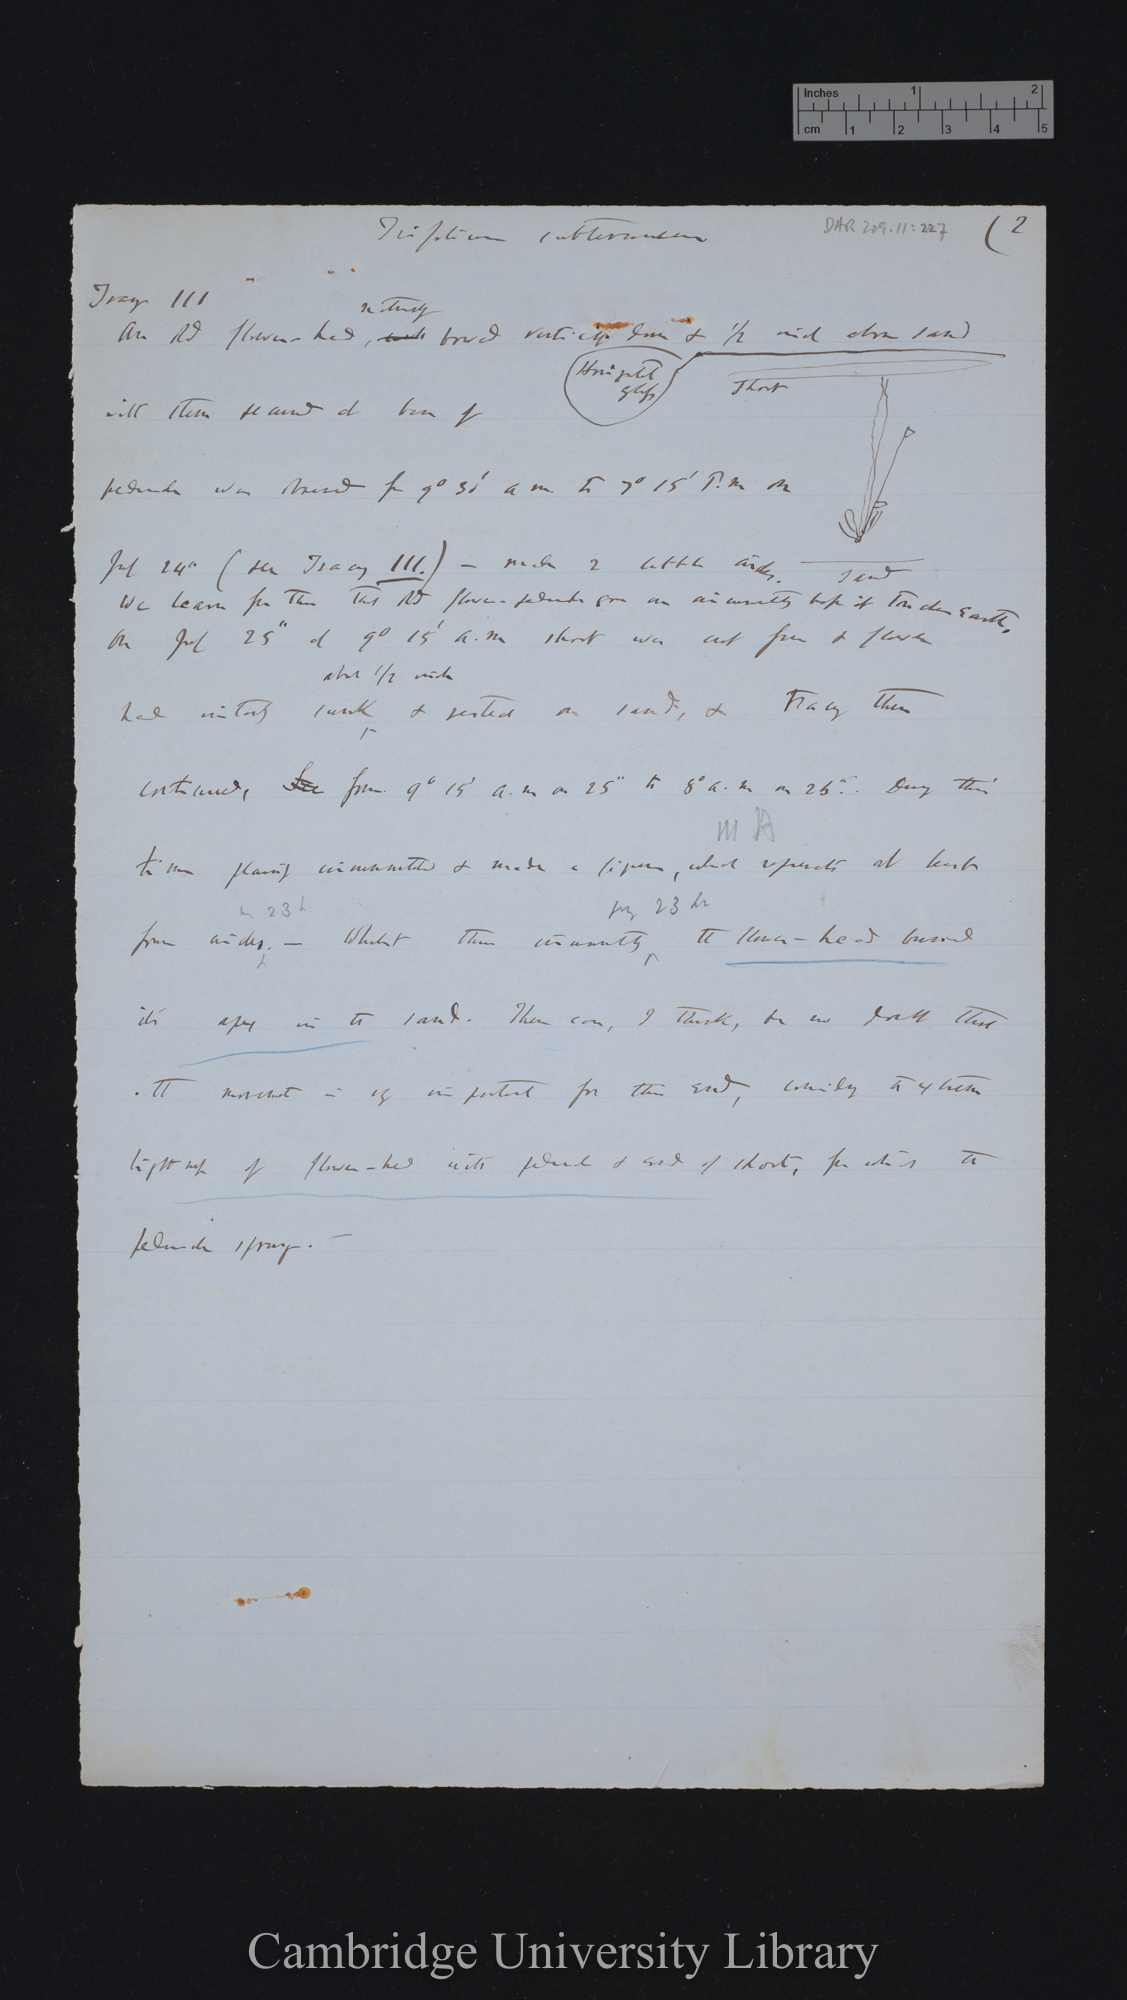 Inches 1 2
cm 1 2 3 4 5
Trifolium subterraneum
DAR 209.11:227
(2
Tracy III
An old flower-head, bowed vertically down & 1/2 inch above sand
Horizontal glass
Shoot
with stem secured at base of
peduncle was traced fr 9° 30' a.m. to 7° 15' P.m on
July 24th (see Tracing III.) — made 2 little circles.
Sand
We learn fr this that old flower-peduncle goes on circumnutating before it touches earth.
On July 25th at 9° 15' a.m shoot was cut free & flower
about 1/2 inch
had instantly sunk & rested on sand, & Tracing then
continued, from 9° 15' a.m on 25th to 8° a.m on 26th. During this
time plainly circumnutated & made a figure, which represents at least
in 23 h
for 23 hr
four circles. — Whilst thus circumnutating the flower-head buried
its apex in the sand. There can, I think, be no doubt that
the movement is important for this end, considering the extreme
lightness of flower-head with peduncle & end of shoot, from which the
peduncle sprung. —
Cambridge University Library